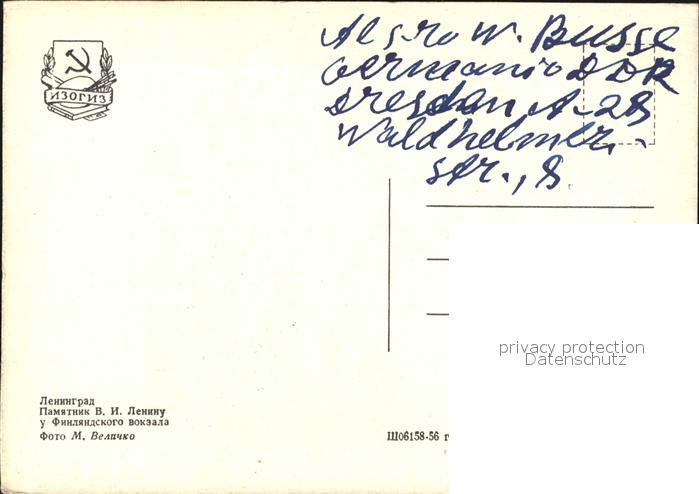 Al s-ro W. Busse
Germanio DDR
Dresden A-28
Waldhelmer.
str., 8.
ИЗОГИЗ
privacy protection
Datenschutz
Ленинград
Памятник В. И. Ленину
у Финляндского вокзала
Фото М. Величко
Ш06158-56 г